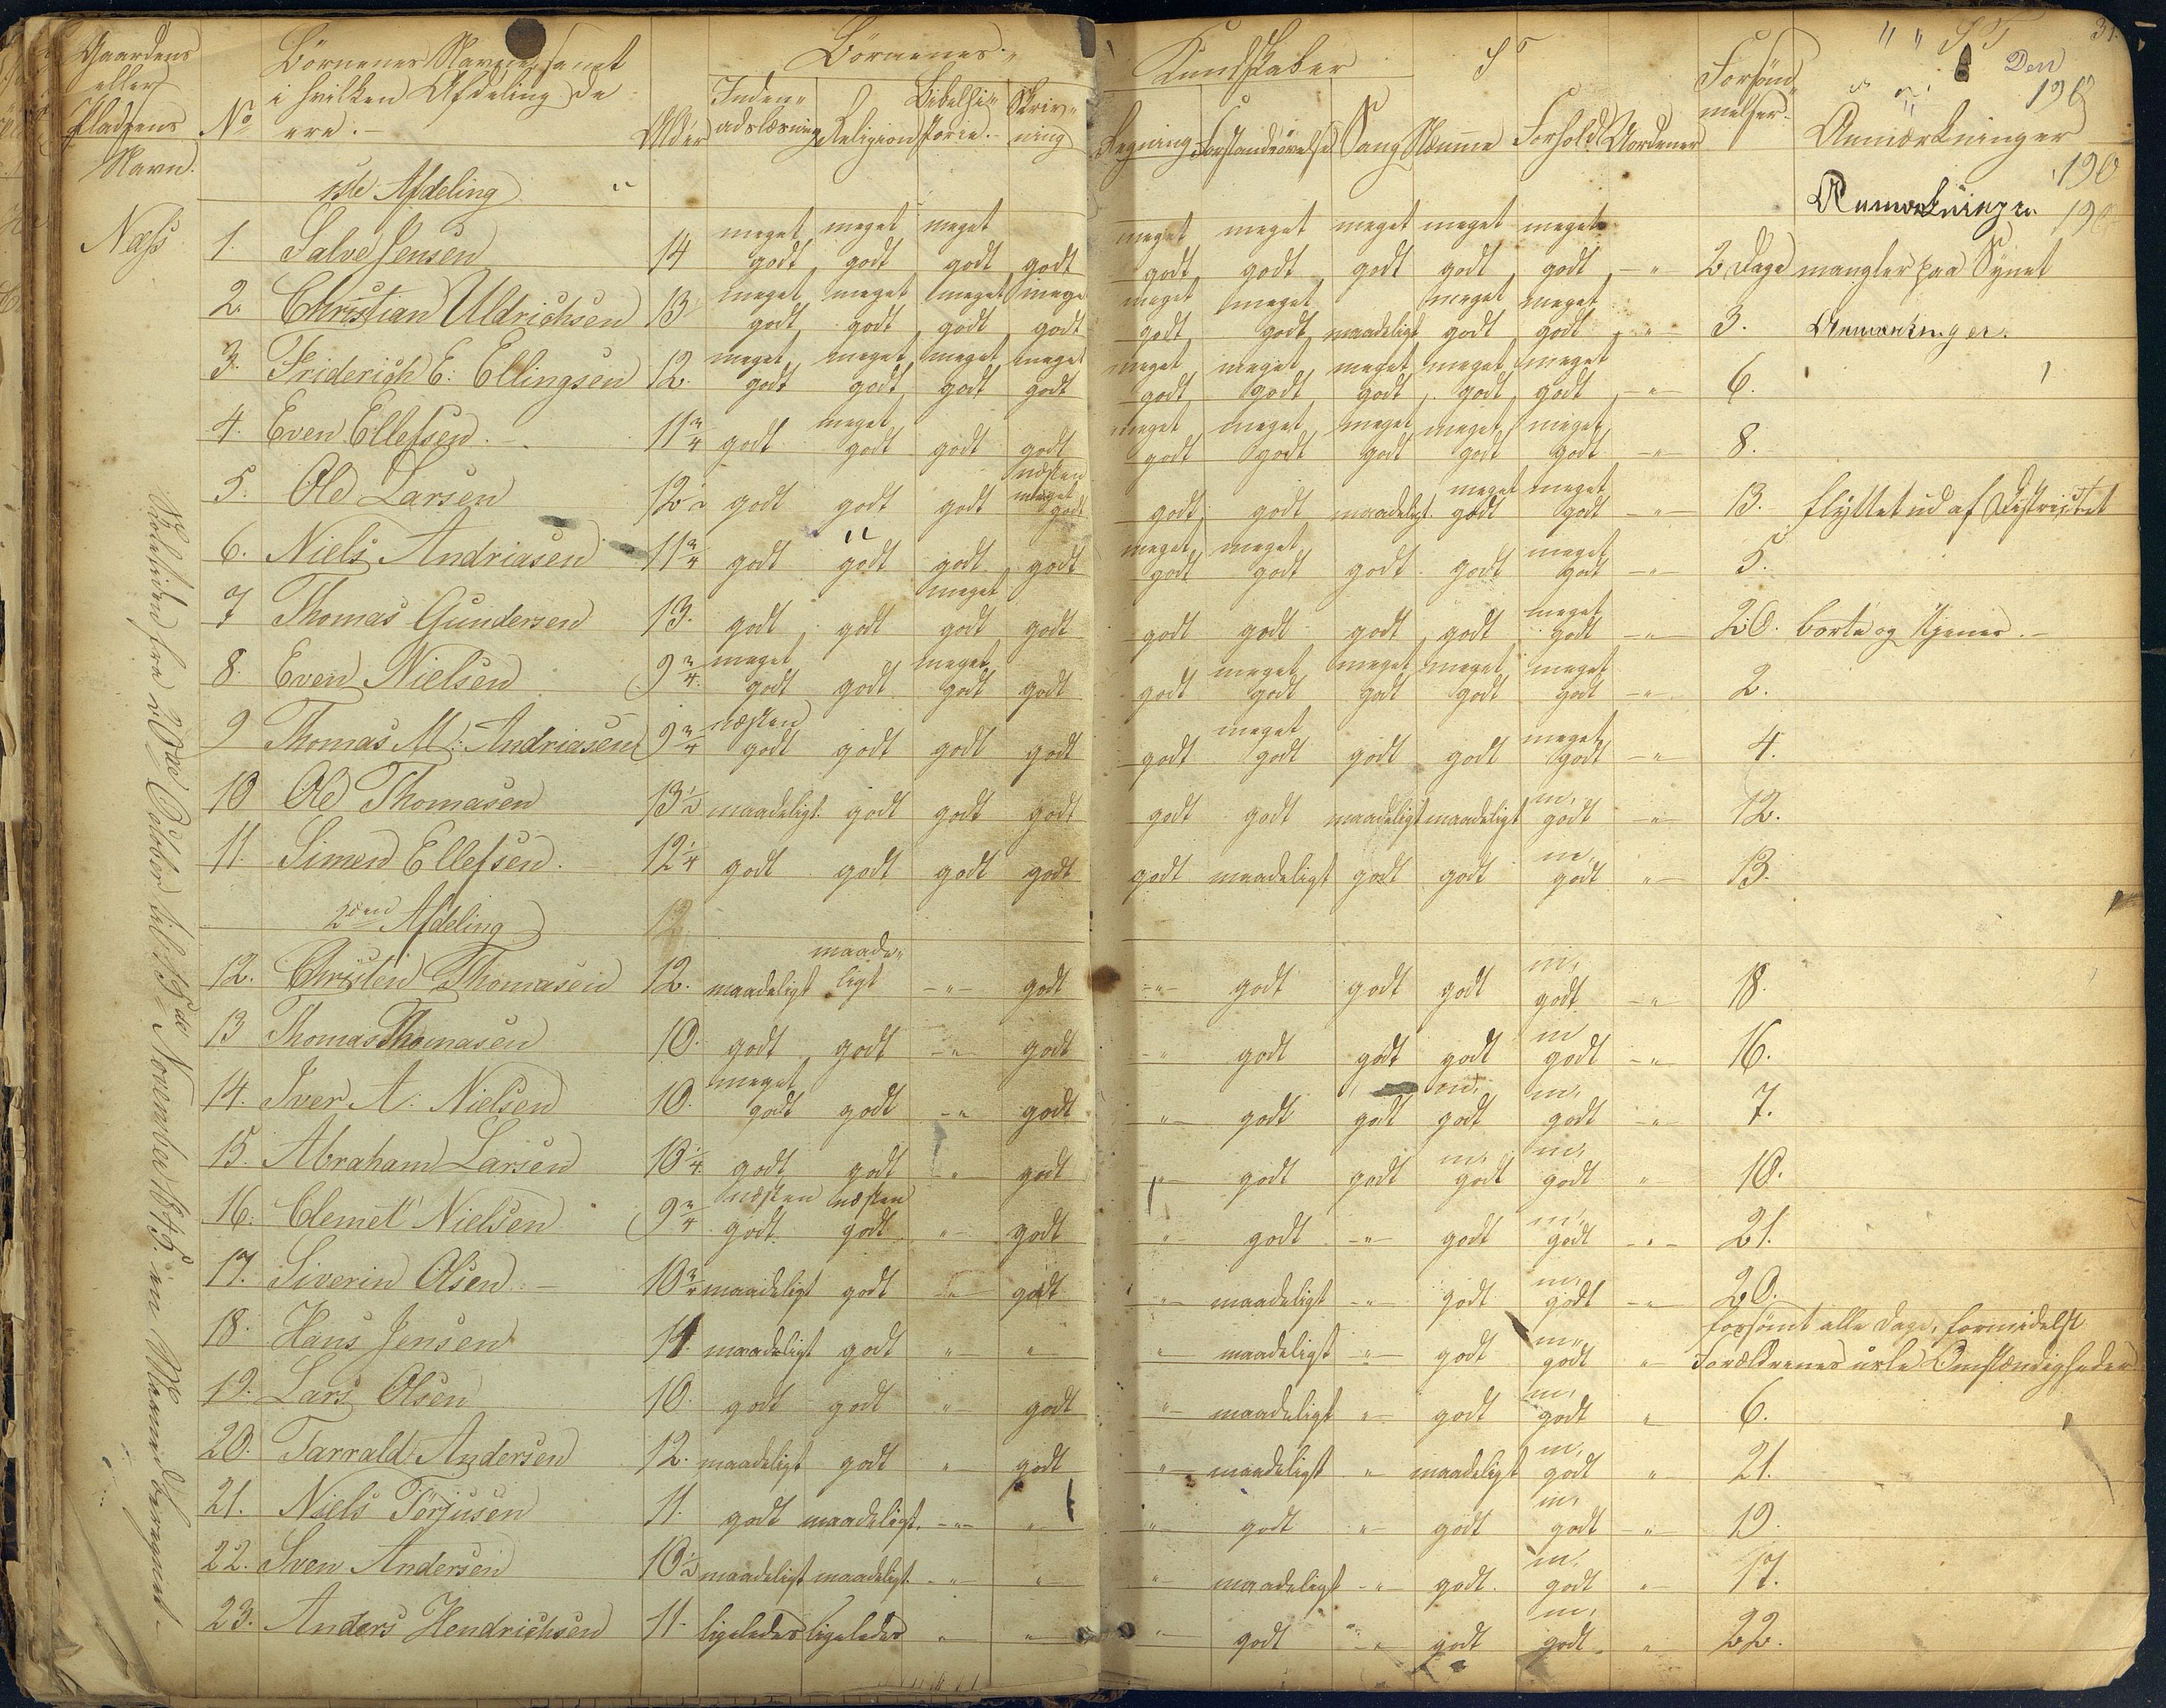 Gaardens eller Pladsens Navn.
No
Börnenes Navne, samt i hvilken Afdeling de ere.-
Alder
Börnenes Kundskaber
Inden-adslæsning Religion Bibelhi-storie.- Skriv-ning
Regning Forstandsøvelse Sang Nemme Forhold Uordener
Forsöm-melser.
Anmærkninger
Den
31.
190
190
Anmærkninger 190
1ste Afdeling
Næss 1. Salve Jensen 14 meget godt meget godt meget godt godt meget godt meget godt meget godt meget godt meget godt -"- 2 Dage mangler paa Synet
2. Christian Uldrichsen 13 meget godt meget godt meget godt meget godt meget godt meget godt maadeligt meget godt meget godt -"- 3. Anmærkninger.
3. Friderich E. Ellingsen 12. meget godt meget godt meget godt meget godt meget godt meget godt meget godt meget godt meget godt -"- 6.
4. Even Ellefsen.- 11 3/4 godt meget godt godt godt meget godt meget godt meget godt meget godt meget godt -"- 8.
5. Ole Larsen 12 1/2 godt godt godt næsten meget godt godt godt maadeligt. meget godt meget godt -"- 13. flyttet ud af Districtet
6. Niels Andriasen 11 3/4 godt godt godt godt meget godt meget godt godt godt meget godt -"- 5.
7 Thomas Gundersen 13. godt godt meget godt godt godt godt godt godt meget godt -"- 20. borte og tjener.-
8. Even Nielsen 9 3/4. meget godt godt meget godt godt godt meget godt meget godt meget godt meget godt -"- 2.
9 Thomas M. Andriasen 9 3/4 næsten godt godt godt godt godt meget godt godt godt meget godt -"- 4.
10 Ole Thomasen 13 1/2 maadeligt godt godt godt godt godt maadeligt maadeligt m. godt -"- 12.
11. Simen Ellefsen. 12 1/4 godt godt godt godt godt maadeligt godt godt m. godt "- 13.
2den Afdeling 12
12. Christen Thomasen 12. maadeligt maade-ligt -"- godt -"- godt godt godt m. godt -"- 18.
13 Thomas Thomasen 10. godt godt -"- godt -"- godt godt godt m godt -"- 16.
14. Iver A. Nielsen 10. meget godt godt -"- godt "- godt godt m. godt m. godt -"- 7.
15. Abraham Larsen 10 1/4 godt godt -"- godt "- godt godt m. godt m. godt "- 10.
16. Clemet Nielsen 9 3/4 næsten godt næsten godt "- godt "- godt -"- godt m. godt -"- 21.
17. Siverin Olsen.- 10 3/4 maadeligt godt -"- godt "- maadeligt -"- godt m. godt -"- 20.
18. Hans Jensen 14. maadeligt godt "- " " maadeligt -"- godt m. godt "- forsömt alle Dage, formedelst
Forældrenes usle Omstændigheder
19. Lars Olsen 10. godt godt "- godt "- maadeligt "- godt m. godt " 6.
20. Tarrald Andersen 12. maadeligt godt " godt "- maadeligt "- maadeligt m. godt " 21.
21. Niels Törjusen 11. godt maadeligt. -"- "- "- godt "- godt m. godt -"- 19.
22. Sven Andersen 10 1/2 maadeligt maadeligt -"- " "- maadeligt -"- godt. m. godt "- 17.
23. Anders Hendrichsen 11- ligeledes ligeledes "- "- "- godt -"- godt m. godt. " 22.
Skoletiden fra 20de October til 15de November 1845 en Maaned beregnet.-